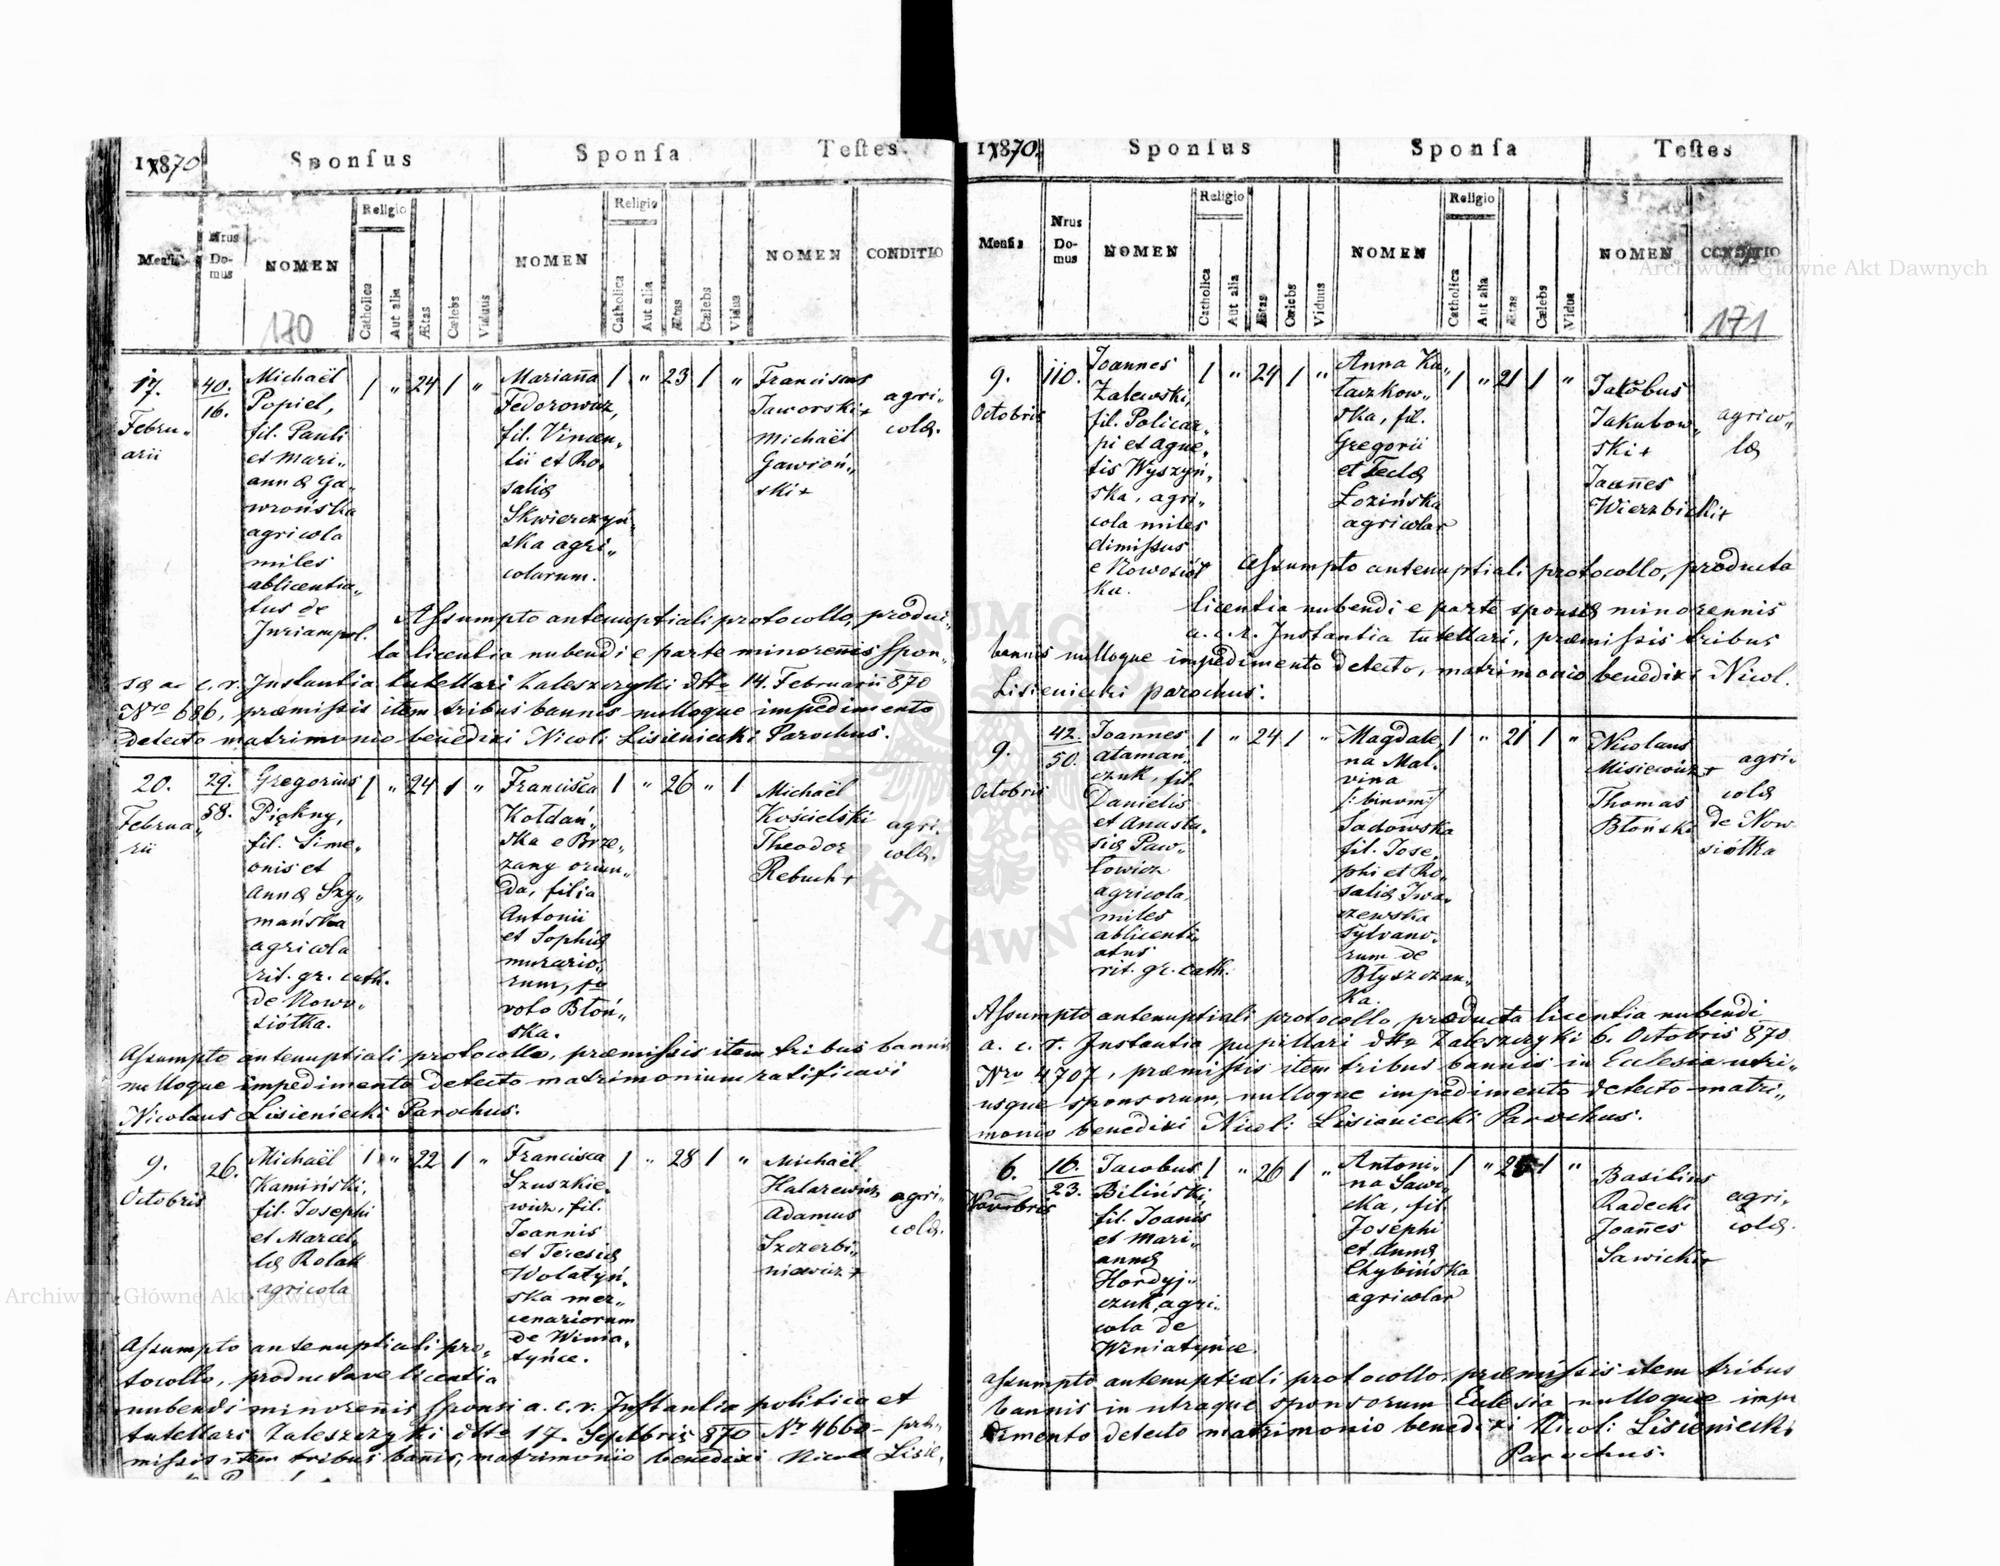 1870
Sponſus
Sponſa
Teſtes.
Menſis
Nrus Do-mus
NOMEN
Religio
Catholica
Aut alia
Ætas
Cælebs
Viduus
NOMEN
Religio
Catholica
Aut alia
Ætas
Cælebs
Vidua
NOMEN
CONDITIO
170
17.
Febru„
arii
40.
16.
Michaël
Popiel,
fil. Pauli
et Mari„
annæ Ga„
wrońska
agricola
miles
ablicentia„
tus de
Juriampol.
/ „ 24 / „
Marianna
Fedorowicz,
fil. Vincen„
tii et Ro„
saliæ
Skwierczyń„
ska agri„
colarum.
/ „ 23 / „
Franciscus
Jaworski +
Michaël
Gawroń„
ski +
agri„
colæ.
Aſsumpto antenuptiali protocollo, produc„
ta licentia nubendi e parte minorenis ſpon„
sæ a c. r. Instantia tutellari Zaleszczyki dtto 14. Februarii 870
Nro 686, præmiſsis item tribus bannis nulloque impedimento
detecto matrimonio benedixi Nicoli Lisieniecki Parochus.
20.
Februa„
rii
29.
58.
Gregorius
Piękny,
fil. Sime„
onis et
Annæ Szy„
mańska
agricola
rit. gr. cath.
de Nowo„
siółka.
/ „ 24 / „
Francisca
Kołdań„
ska e Brze„
zany oriun„
da, filia
Antonii
et Sophiæ
murario„
rum, 1o
voto Błoń„
ska.
/ „ 26 „ /
Michaël
Kościelski
Theodor
Rebuch +
agri„
colæ.
Aſsumpto antenuptiali protocollo, præmiſsis item tribus bannis
nulloque impedimento detecto matrimonium ratificavi
Nicolaus Lisieniecki Parochus.
9.
Octobris
26.
Michaël
Kamiński,
fil. Josephi
et Marcel„
læ Rolak
agricola
/ „ 22 / „
Francisca
Szuszkie„
wicz, fil.
Joannis
et Teresiæ
Wolatyń„
ska mer„
cenariorum
de Winia„
tyńce.
/ „ 28 / „
Michaël
Hatarewicz
Adamus
Szczerbi„
niewicz +
agri„
colæ.
Aſsumpto antenuptiali pro„
tocollo, productave licentia
nubendi minorenis ſponsi a. c. r. Inſtantia politica et
tutellari Zaleszczyki dtto 17. Septbris 870 Nr 4660 – præ„
miſsis item tribus banis, matrimonio benedixi Nicol Lisie„
1870.
Sponſus
Sponſa
Teſtes
Menſis
Nrus Do-mus
NOMEN
Religio
Catholica
Aut alia
Ætas
Cælebs
Viduus
NOMEN
Religio
Catholica
Aut alia
Ætas
Cælebs
Vidua
NOMEN
CONDITIO
171
9.
Octobris
110.
Joannes
Zalewski,
fil. Policar„
pi et Agne„
tis Wyszyń„
ska, agri„
cola miles
dimiſsus
e Nowosiół
ka.
/ „ 24 / „
Anna Ku„
taczkow„
ska, fil.
Gregorii
et Teclæ
Łozińska
agricolar
/ „ 21 / „
Jacobus
Jakubow„
ski +
Joannes
Wierzbicki +
agrico„
læ
Aſsumpto antenuptiali protocollo, producta
licentia nubendi e parte sponsæ minorennis
a. c. r. Instantia tutellari, præmiſsis tribus
bannis nulloque impedimento detecto, matrimonio benedixi Nicol.
Lisieniecki parochus.
9.
Octobris
42.
50.
Joannes
Ataman„
czuk, fil.
Danielis
et Anasta„
siæ Paw„
łowicz
agricola
miles
ablicenti„
atus
rit. gr. cath.
/ „ 24 / „
Magdale„
na Mal„
vina
/: binom :/
Sadowska
fil. Jose„
phi et Ro„
saliæ Iwa„
szewska
sylvano„
rum de
Błyszczan„
ka.
/ „ 21 / „
Nicolaus
Misiewicz +
Thomas
Błoński
agri„
colæ
de Now
siółka
Aſsumpto antenuptiali protocollo, producta licentia nubendi
a. c. r. Instantia pupillari dtto Zaleszczyki 6. Octobris 870
Nro 4707, præmiſsis item tribus bannis in Eclesia utri„
usque sponsorum, nulloque impedimento detecto matri„
monio benedixi Nicol: Lisieniecki Parochus.
6.
Novbris
16.
23.
Jacobus
Biliński,
fil. Joanis
et Mari„
annæ
Hordyj„
czuk, agri„
cola de
Winiatyńce.
/ „ 26 / „
Antoni„
na Sawi„
cka, fil.
Josephi
et Annæ
Chybińska
agricolar
/ „ / „
Basilius
Radecki
Joañes
Sawicki +
agri„
colæ.
Aſsumpto antenuptiali protocollo, præmiſsis item tribus
bannis in utraque sponsorum Eclesia nulloque impe
dimento detecto matrimonio benedixi Nicol: Lisieniecki
Parochus.
Archiwum Główne Akt Dawnych
Archiwum Główne Akt Dawnych